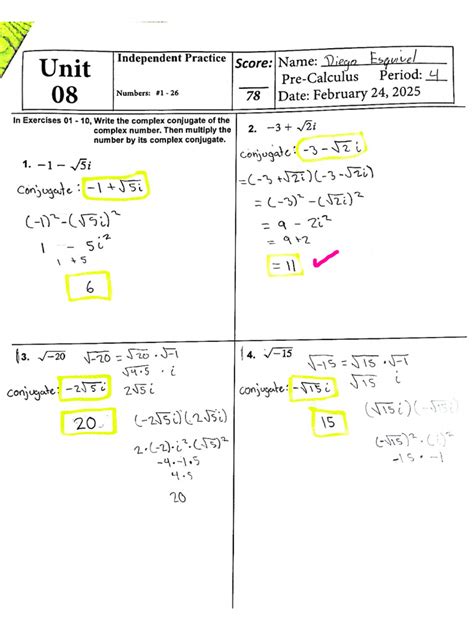 Unit
08
Independent Practice
Numbers: #1 - 26
Score:
78
Name: Diego Esquivel
Pre-Calculus Period: 4
Date: February 24, 2025
In Exercises 01 - 10, Write the complex conjugate of the
complex number. Then multiply the
number by its complex conjugate.
1. -1 - √5i
conjugate: -1 + √5i
(-1)² - (√5i)²
1 - 5i²
1 + 5
6
2. -3 + √2i
conjugate: -3 - √2i
= (-3 + √2i)(-3 - √2i)
= (-3)² - (√2i)²
= 9 - 2i²
= 9 + 2
= 11 ✓
3. √-20
√-20 = √20 · √-1
√4·5 · i
conjugate: -2√5i
2√5i
20
(-2√5i)(2√5i)
2·(-2)·i²·(√5)²
-4·-1·5
4·5
20
4. √-15
√-15 = √15 · √-1
√15 i
conjugate: -√15i
15
(√15i)(-√15i)
(-√15)²·(i)²
-15 · -1